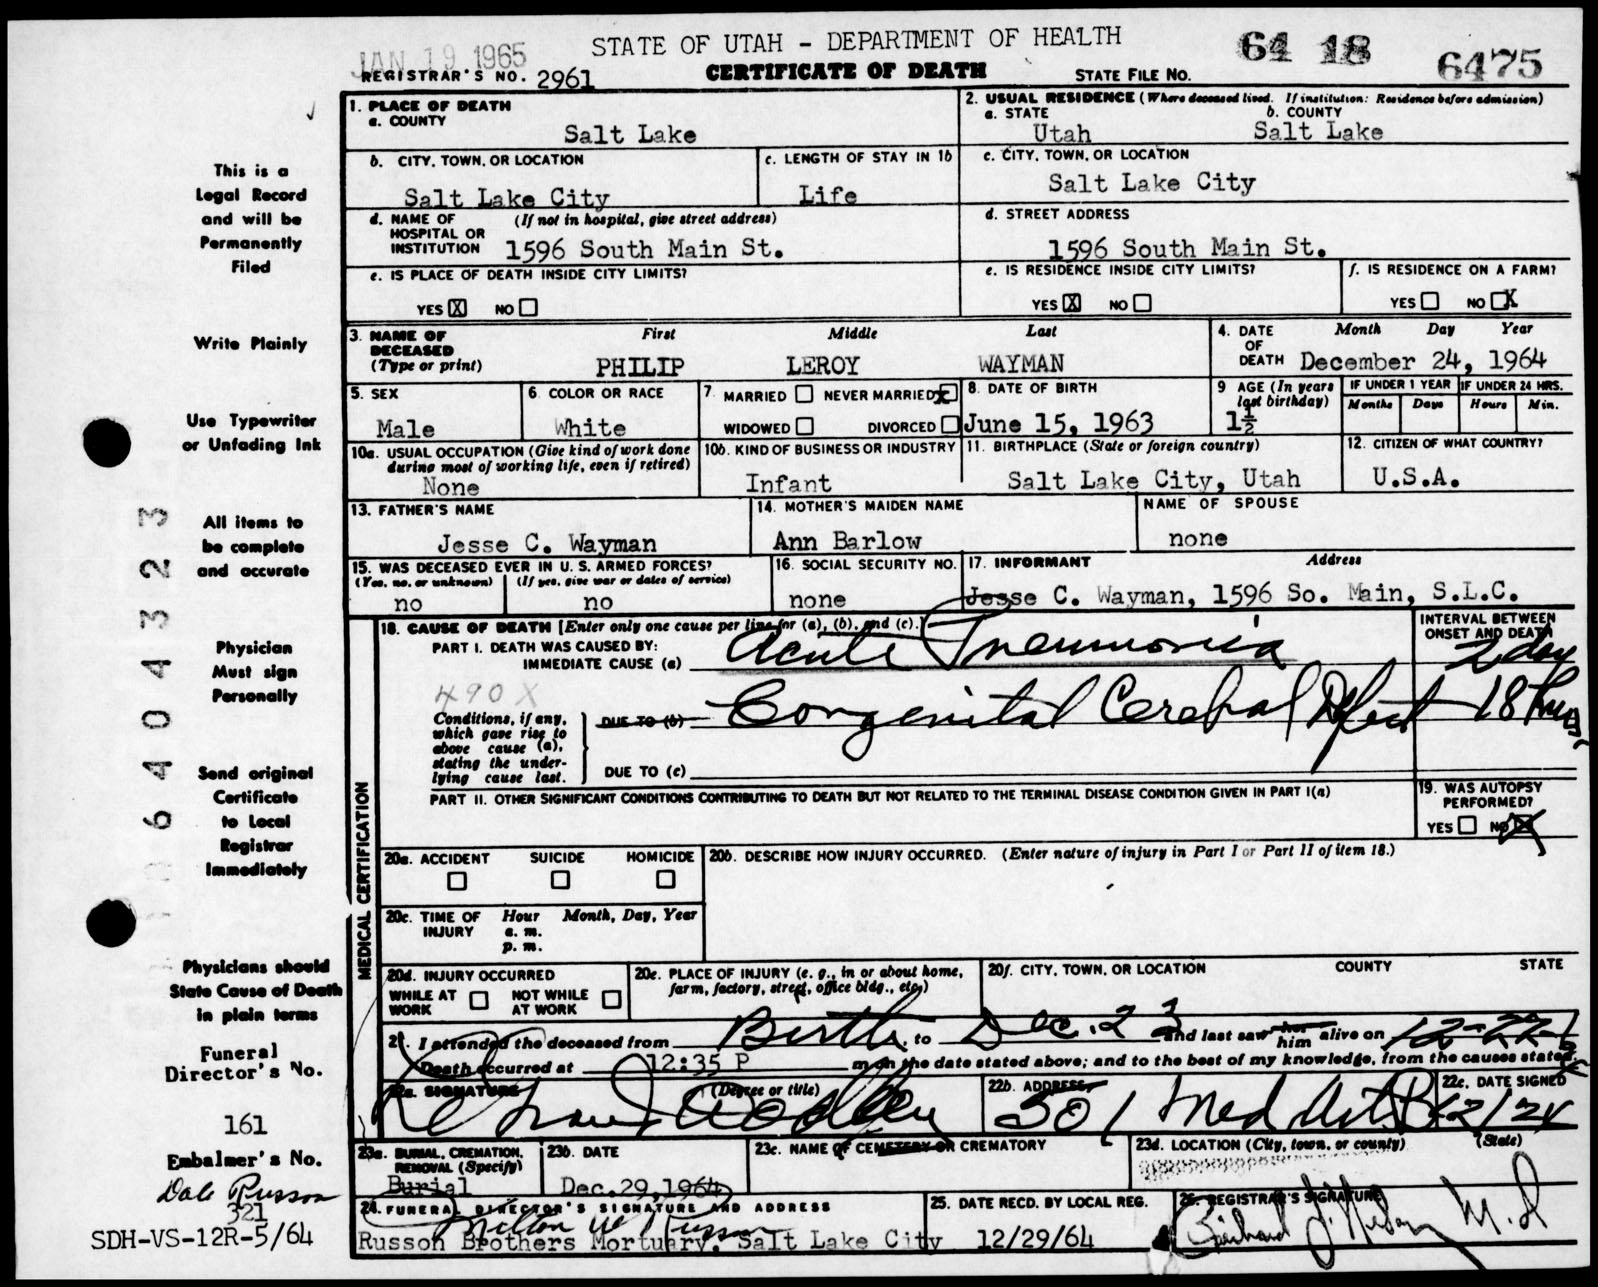 JAN 19 1965
STATE OF UTAH - DEPARTMENT OF HEALTH
64 18
6475
REGISTRAR'S NO. 2961
CERTIFICATE OF DEATH
STATE FILE NO.
1. PLACE OF DEATH
a. COUNTY
Salt Lake
2. USUAL RESIDENCE (Where deceased lived. If institution: Residence before admission)
a. STATE
Utah
b. COUNTY
Salt Lake
b. CITY, TOWN, OR LOCATION
Salt Lake City
c. LENGTH OF STAY IN 1b
Life
c. CITY, TOWN, OR LOCATION
Salt Lake City
d. NAME OF HOSPITAL OR INSTITUTION (If not in hospital, give street address)
1596 South Main St.
d. STREET ADDRESS
1596 South Main St.
e. IS PLACE OF DEATH INSIDE CITY LIMITS?
YES X NO
e. IS RESIDENCE INSIDE CITY LIMITS?
YES X NO
f. IS RESIDENCE ON A FARM?
YES NO X
3. NAME OF DECEASED (Type or print)
First Middle Last
PHILIP LEROY WAYMAN
4. DATE OF DEATH
Month Day Year
December 24, 1964
5. SEX
Male
6. COLOR OR RACE
White
7. MARRIED NEVER MARRIED X
WIDOWED DIVORCED
8. DATE OF BIRTH
June 15, 1963
9 AGE (In years last birthday)
1½
IF UNDER 1 YEAR
Months Days
IF UNDER 24 HRS.
Hours Min.
10a. USUAL OCCUPATION (Give kind of work done during most of working life, even if retired)
None
10b. KIND OF BUSINESS OR INDUSTRY
Infant
11. BIRTHPLACE (State or foreign country)
Salt Lake City, Utah
12. CITIZEN OF WHAT COUNTRY?
U.S.A.
13. FATHER'S NAME
Jesse C. Wayman
14. MOTHER'S MAIDEN NAME
Ann Barlow
NAME OF SPOUSE
none
15. WAS DECEASED EVER IN U. S. ARMED FORCES?
(Yes, no, or unknown) (If yes, give war or dates of service)
no no
16. SOCIAL SECURITY NO.
none
17. INFORMANT Address
Jesse C. Wayman, 1596 So. Main, S.L.C.
MEDICAL CERTIFICATION
18. CAUSE OF DEATH [Enter only one cause per line for (a), (b), and (c).]
INTERVAL BETWEEN ONSET AND DEATH
PART I. DEATH WAS CAUSED BY:
IMMEDIATE CAUSE (a)
Acute Pneumonia 2 day
490X
Conditions, if any, which gave rise to above cause (a), stating the underlying cause last.
DUE TO (b)
Congenital Cerebral Defect 18
DUE TO (c)
PART II. OTHER SIGNIFICANT CONDITIONS CONTRIBUTING TO DEATH BUT NOT RELATED TO THE TERMINAL DISEASE CONDITION GIVEN IN PART I(a)
19. WAS AUTOPSY PERFORMED?
YES NO X
20a. ACCIDENT SUICIDE HOMICIDE
20b. DESCRIBE HOW INJURY OCCURRED. (Enter nature of injury in Part I or Part II of item 18.)
20c. TIME OF INJURY
Hour Month, Day, Year
a. m.
p. m.
20d. INJURY OCCURRED
WHILE AT WORK NOT WHILE AT WORK
20e. PLACE OF INJURY (e. g., in or about home, farm, factory, street, office bldg., etc.)
20f. CITY, TOWN, OR LOCATION COUNTY STATE
21. I attended the deceased from Birth, to Dec. 23 and last saw her him alive on 12-22-
Death occurred at 12:35 P m on the date stated above; and to the best of my knowledge, from the causes stated.
22a. SIGNATURE (Degree or title)
22b. ADDRESS
501 Med Arts B
22c. DATE SIGNED
12/24
23a. BURIAL, CREMATION, REMOVAL (Specify)
Burial
23b. DATE
Dec.29,1964
23c. NAME OF CEMETERY OR CREMATORY
23d. LOCATION (City, town, or county) (State)
24. FUNERAL DIRECTOR'S SIGNATURE AND ADDRESS
Milton W Russon
Russon Brothers Mortuary, Salt Lake City
25. DATE RECD. BY LOCAL REG.
12/29/64
26. REGISTRAR'S SIGNATURE
M.D
This is a
Legal Record
and will be
Permanently
Filed
Write Plainly
Use Typewriter
or Unfading Ink
All items to
be complete
and accurate
Physician
Must sign
Personally
Send original
Certificate
to Local
Registrar
Immediately
Physicians should
State Cause of Death
in plain terms
Funeral
Director's No.
161
Embalmer's No.
Dale Russon
321
SDH-VS-12R-5/64
64043323